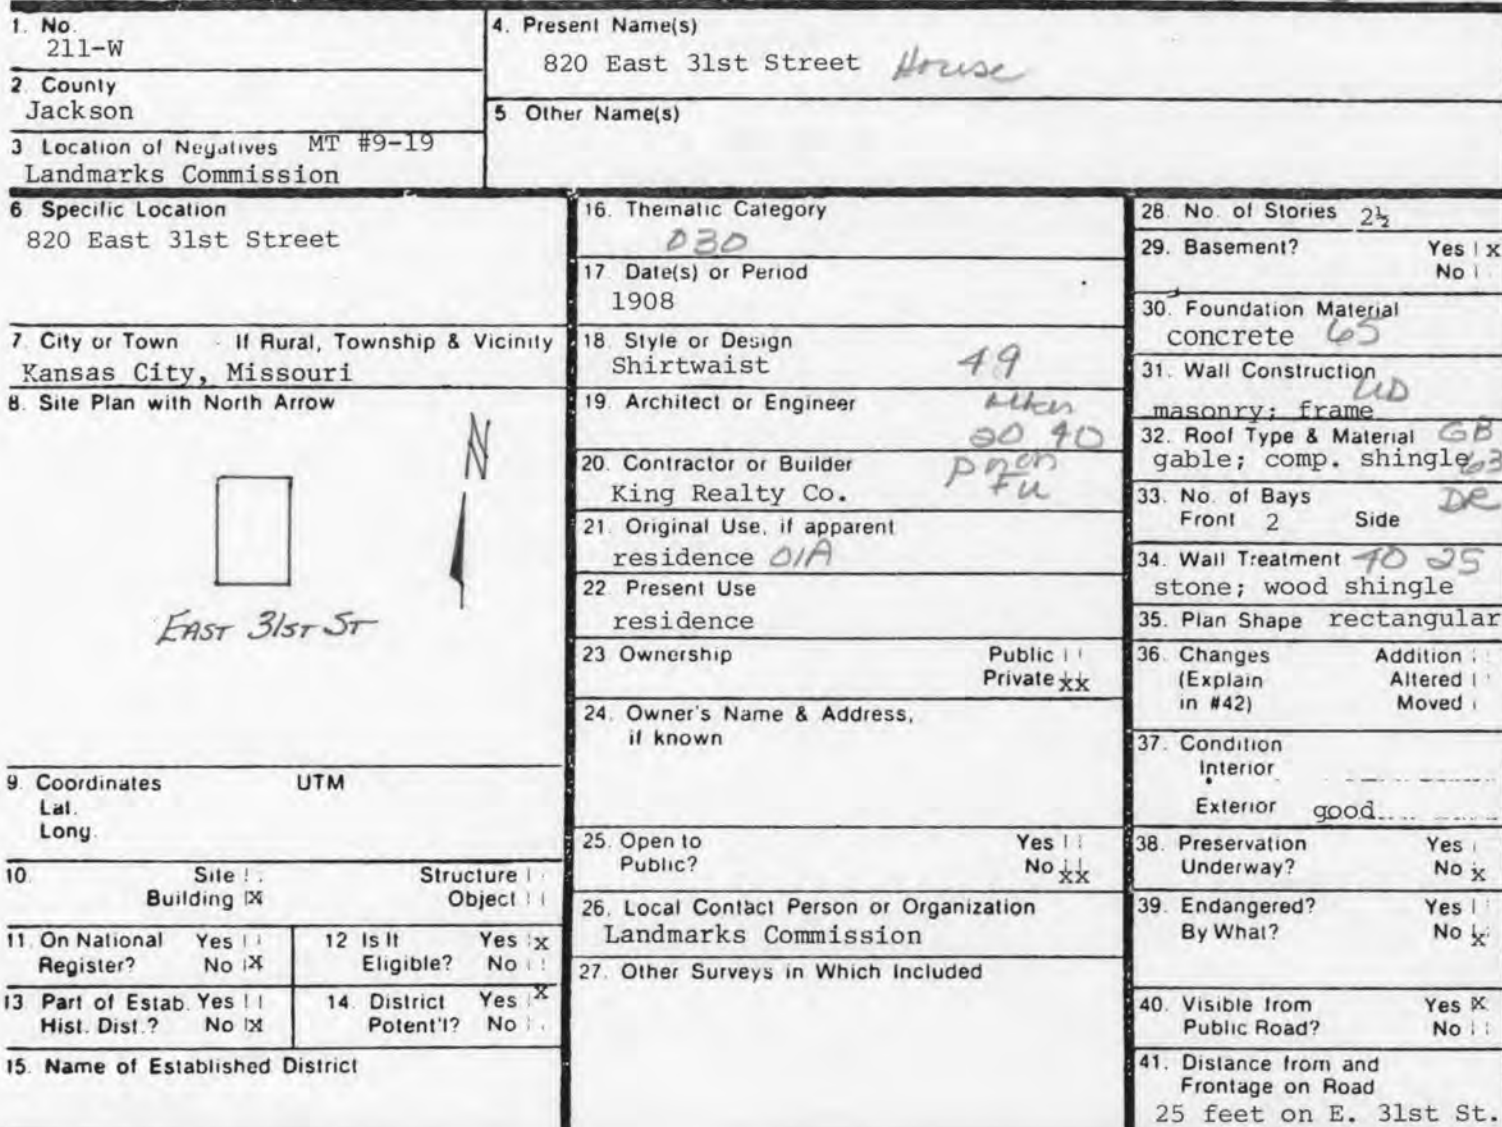 1. No.
211-W
2. County
Jackson
3 Location of Negatives MT #9-19
Landmarks Commission
4. Present Name(s)
820 East 31st Street House
5 Other Name(s)
6 Specific Location
820 East 31st Street
7. City or Town If Rural, Township & Vicinity
Kansas City, Missouri
8. Site Plan with North Arrow
N
EAST 31ST ST
9. Coordinates UTM
Lat.
Long.
10. Site Structure
Building X Object
11. On National Yes
Register? No X
12 Is It Yes X
Eligible? No
13 Part of Estab. Yes
Hist. Dist.? No X
14. District Yes X
Potent'l? No
15. Name of Established District
16. Thematic Category
030
17 Date(s) or Period
1908
18. Style or Design
Shirtwaist 49
19. Architect or Engineer
20 40
20. Contractor or Builder
King Realty Co.
21. Original Use, if apparent
residence 01A
22 Present Use
residence
23 Ownership Public
Private xx
24. Owner's Name & Address,
if known
25. Open to Yes
Public? No xx
26. Local Contact Person or Organization
Landmarks Commission
27. Other Surveys in Which Included
28. No. of Stories 2½
29. Basement? Yes x
No
30. Foundation Material
concrete 65
31. Wall Construction
UD
masonry; frame
32. Roof Type & Material GB
gable; comp. shingle 63
33. No. of Bays DR
Front 2 Side
34. Wall Treatment 40 25
stone; wood shingle
35. Plan Shape rectangular
36. Changes Addition
(Explain Altered
in #42) Moved
37. Condition
Interior
Exterior good
38. Preservation Yes
Underway? No x
39. Endangered? Yes
By What? No x
40. Visible from Yes X
Public Road? No
41. Distance from and
Frontage on Road
25 feet on E. 31st St.